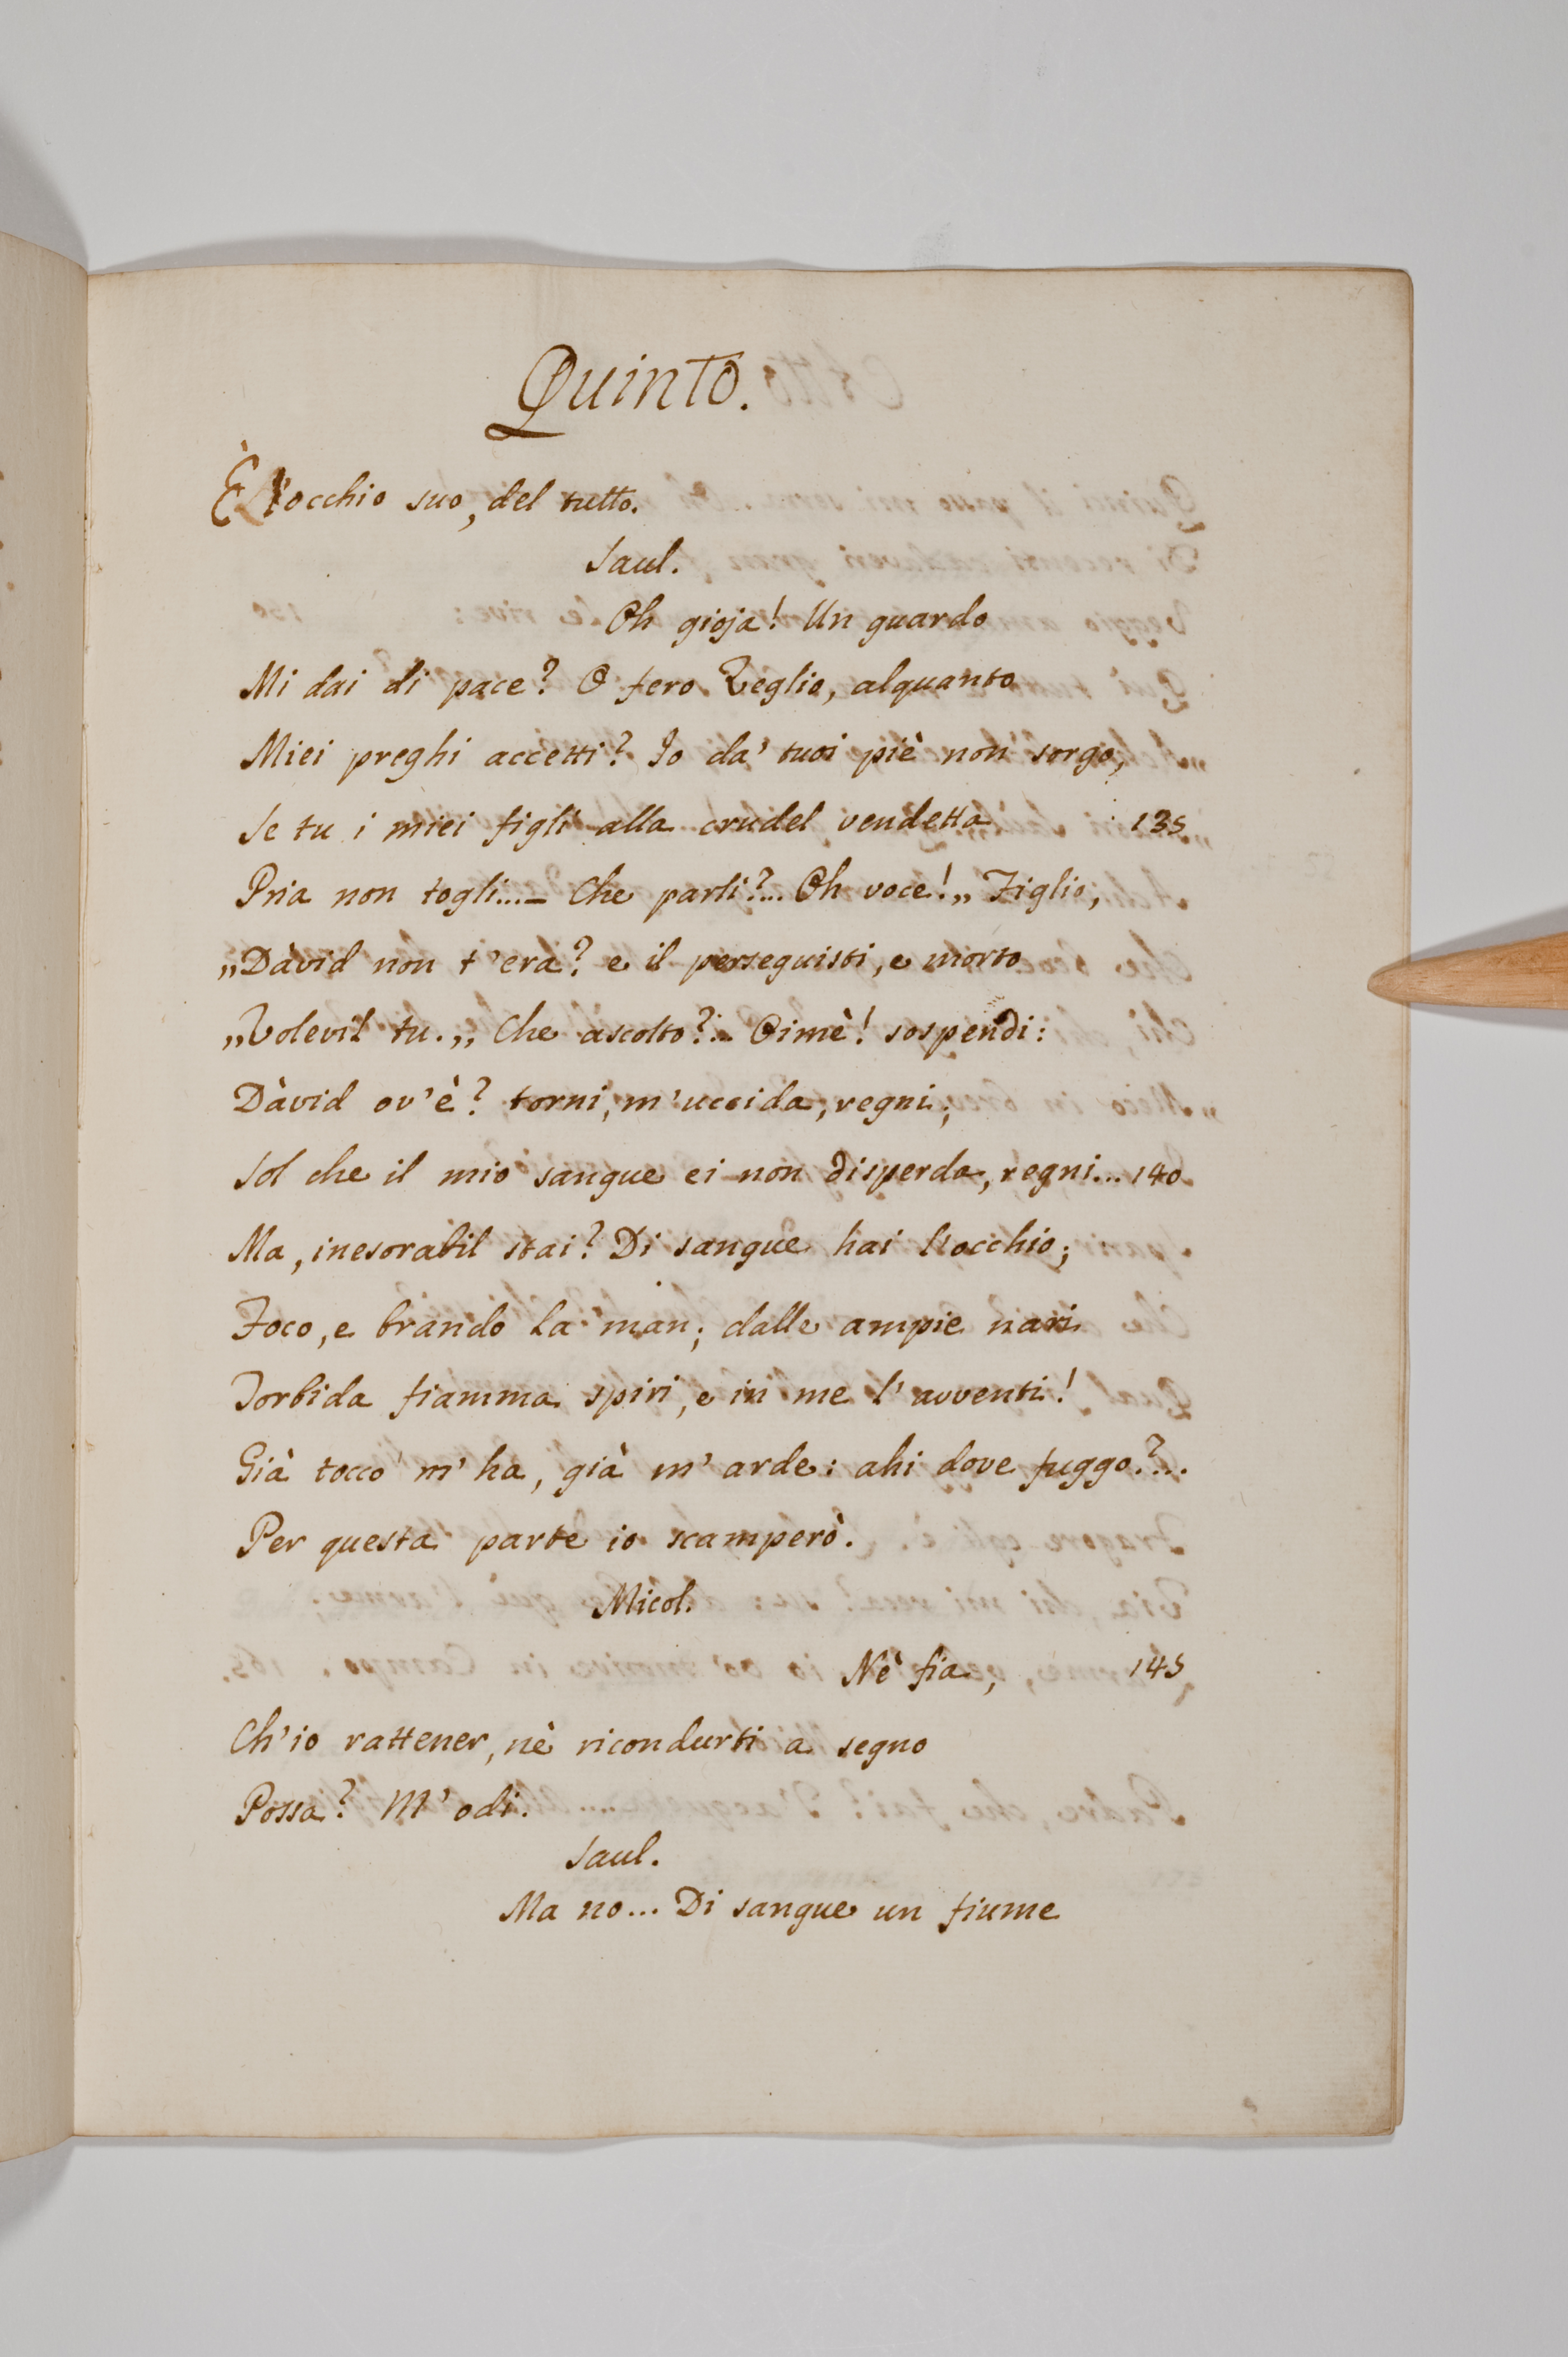 Quinto.
È l'occhio suo, del tutto.
Saul.
Oh gioja! Un guardo
Mi dai di pace? O fero Veglio, alquanto
Miei preghi accetti? Io da' tuoi piè non sorgo,
Se tu i miei figli alla crudel vendetta 135
Pria non togli...— Che parli?... Oh voce! „ Figlio,
„ Dàvid non t'era? e il perseguisti, e morto
„ Volevil tu. „ Che ascolto?... Oimè! sospendi:
Dàvid ov'è? torni, m'uccida, regni;
Sol che il mio sangue ei non disperda, regni... 140
Ma, inesorabil stai? Di sangue hai l'occhio;
Foco, e brando la man; dalle ampie nari
Torbida fiamma spiri, e in me l'avventi!
Già tocco m'ha, già m'arde: ahi dove fuggo?...
Per questa parte io scamperò.
Micol.
Nè fia, 145
Ch'io rattener, nè ricondurti a segno
Possa? M'odi.
Saul.
Ma no... Di sangue un fiume